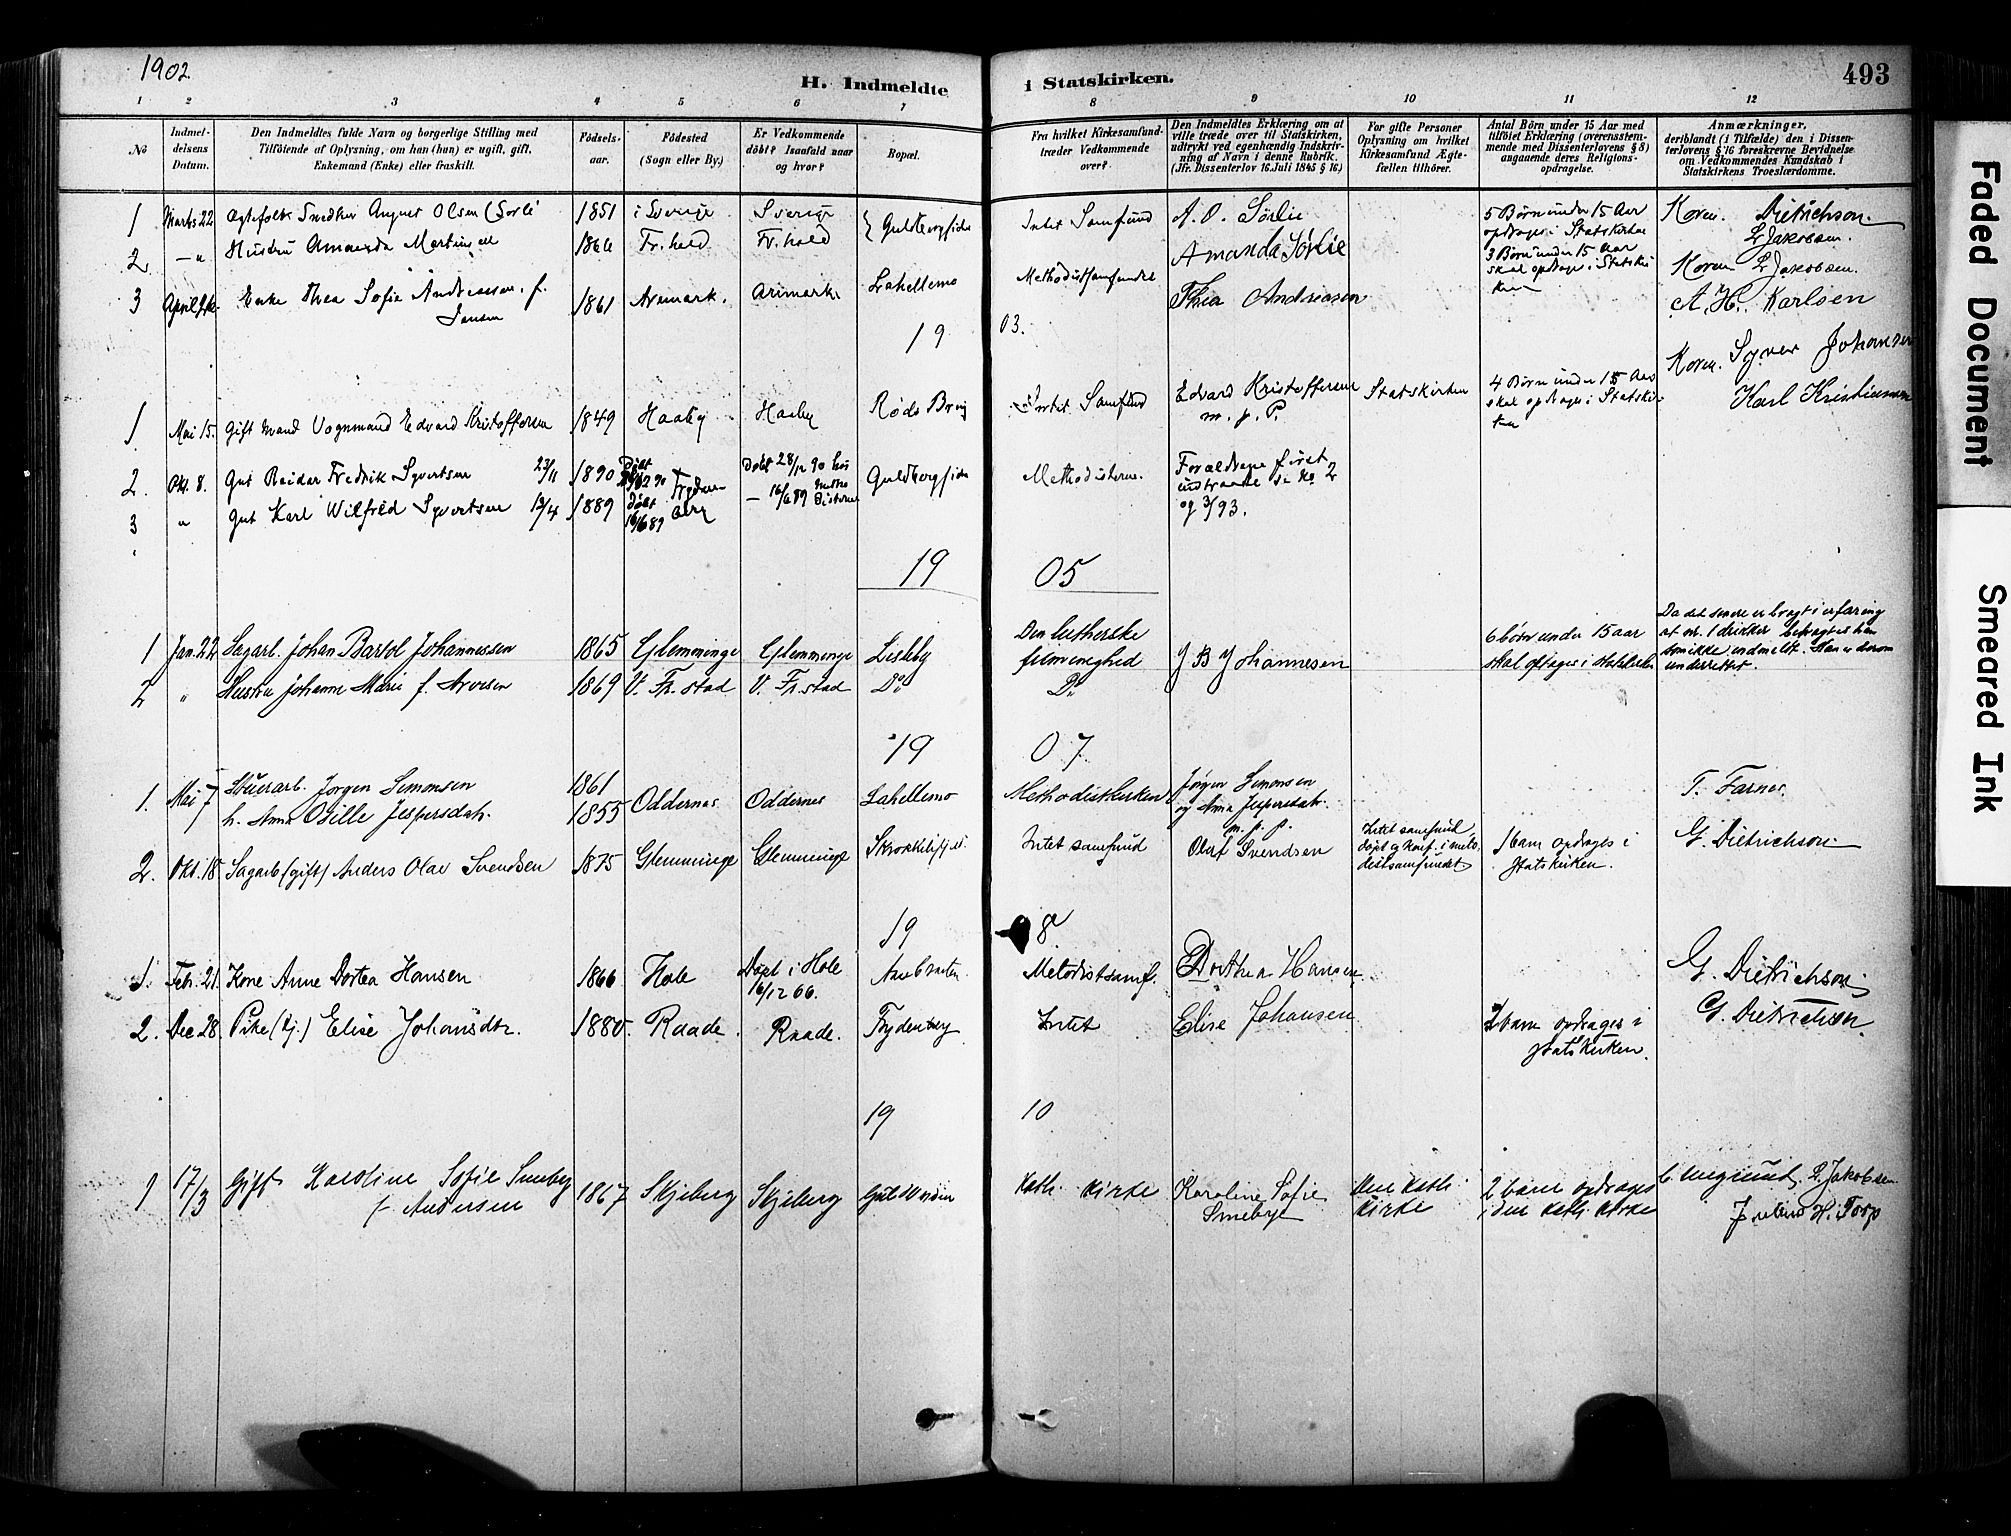 1902.
H. Indmeldte i Statskirken.
493
1 2 3 4 5 6 7 8 9 10 11 12
No
Indmeldelsens Datum.
Den Indmeldtes fulde Navn og borgerlige Stilling med Tilføiende af Oplysning, om han (hun) er ugift, gift, Enkemand (Enke) eller fraskilt.
Fødselsaar.
Fødested (Sogn eller By.)
Er Vedkommende døbt? Isaafald naar og hvor?
Bopæl.
Fra hvilket Kirkesamfund træder Vedkommende over?
Den Indmeldtes Erklæring om at ville træde over til Statskirken, udtrykt ved egenhændig Indskrivning af Navn i denne Rubrik. (Jfr. Dissenterlov 16 Juli 1845 § 16)
For gifte Personer Oplysning om hvilket Kirkesamfund Ægtefællen tilhører.
Antal Börn under 15 Aar med tilföiet Erklæring (overensstemmende med Dissenterlovens § 8) angaaende deres Religionsopdragelse.
Anmærkninger, deriblandt (i Tilfælde) den i Dissenterlovens § 16 foreskrevne Bevidnelse om Vedkommendes Kundskab i Statskirkens Troeslærdomme.
1 Marts 22 Ægtefolk Snedker August Olsen (Sorli 1851 i Sverige Sverige } Guldbergsiden Intet Samfund A. O. Sørlie 5 Børn under 15 Aar opdrages i Statskirken Koren. Dietrichson. L Jakobsen.
2 — " Hustru Amanda 1866 Fr.hald Fr. hald Amanda Sørlie
3 Enke Thea Sofie Andreasen. f. Jansen 1861 Aremark. Arimark Lahellemo Methodistsamfundet Thea Andreasen 3 Børn under 15 Aar skal opdrages i Statskirken Koren L Jakobsen. A. H. Karlsen
19 03.
1 Mai 15. Gift Mand Vognmand Edvard Kristoffersen 1849 Haaby Haaby Røds Brug Intet Samfund Edvard Kristoffersen m. p. P. Statskirken 4 Børn under 15 Aar skal opdrages i Statskirken Koren. Syver Johansen Karl Kristiansen
2. Okt. 8. Gut Reidar Fredrik Syvertsen 23/11 1890 Døbt 28/12 90 Døbt 28/12 90 hos Guldbergsiden Methodisterne. Forældrene først indtraadte se No 2 og 3/93.
3 " Gut Karl Wilfred Syvertsen 12/4 1889 døbt 16/6 89 — 16/6 89
19 05
1 Jan. 22 Sagarb. Johan Bartol Johannessen 1865 Glemminge Glemminge Lisleby Den lutherske frimenighed J B Johannesen 6 børn under 15 aar skal optages i statskirken Da det senere er bragt i erfaring at nr. 1 drikker betragtes han som ikke indmeldt. Han er derom underrettet.
2 " Hustru Johanne Marie f. Arvesen 1869 V. Fr. stad V. Fr. stad Do Do
19 07
1. Mai 7 Stuerarb. Jørgen Simonsen 1861
h. Anna Jespersdatr. 1855 Oddernes Oddernes Lahellemo Methodistkirken Jørgen Simonsen og Anna Jespersdatr. m. p. p. T. Farner
2. Okt. 18. Sagarb (gift) Anders Olav Svendsen 1875 Glemminge Glemminge Intet samfund Olaf Svendsen Intet samfund, døpt og konf. i metodistsamfundet 1 barn opdrages i statskirken. G. Dietrichson.
19 08
1. Febr. 21. Kone Anne Dortea Hansen 1866 Hole Døpt i Hole 16/12 66. Metodistsamf. Dorthea Hansen G. Dietrichson
2. Dec 28. Pike (tj.) Elise Johansdtr. 1880. Raade. Raade. Frydenberg Intet Elise Johansen 2 barn opdrages i statskirken. G. Dietrichson
19 10
1 17/3 Gift Karoline Sofie Smeby f. Andersen 1867 Skjeberg Skjeberg Kath. kirke Karoline Sofie Smebye den kath. kirke 2 barn opdrages i den kath. kirke L. Jakobsen H. Torp
Faded Document
Smeared Ink